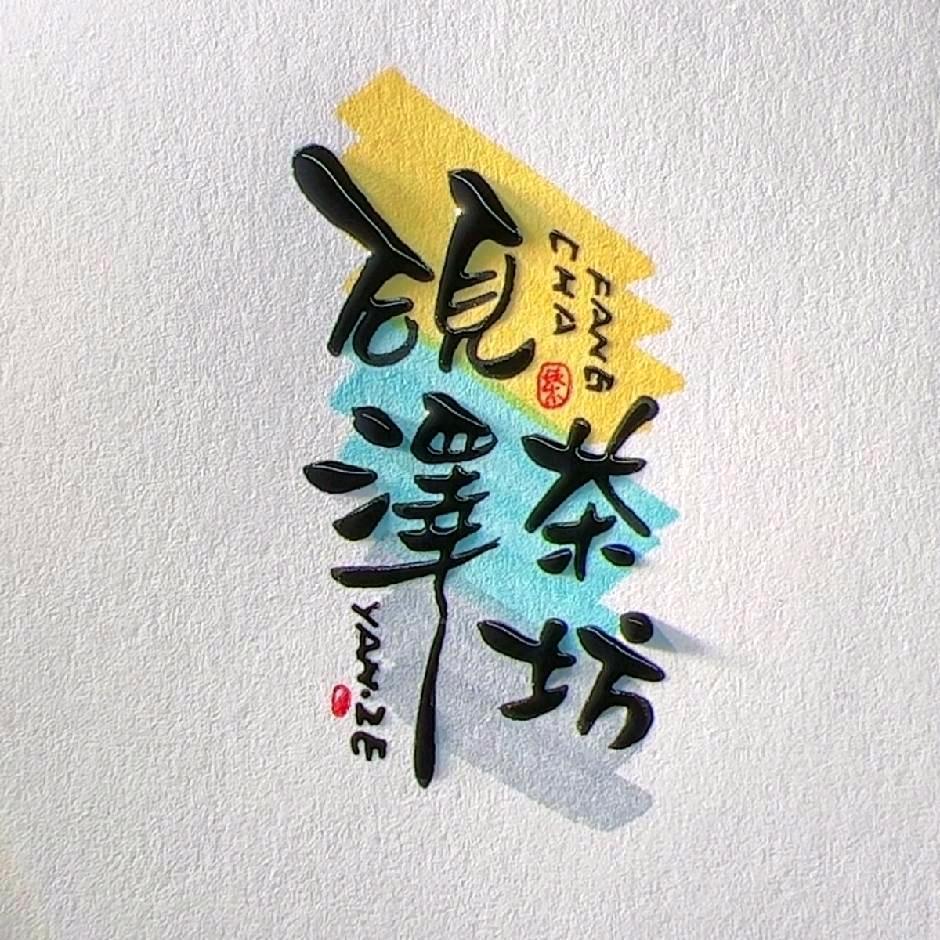 硯澤
YAN.ZE
CHA
FANG
茶坊